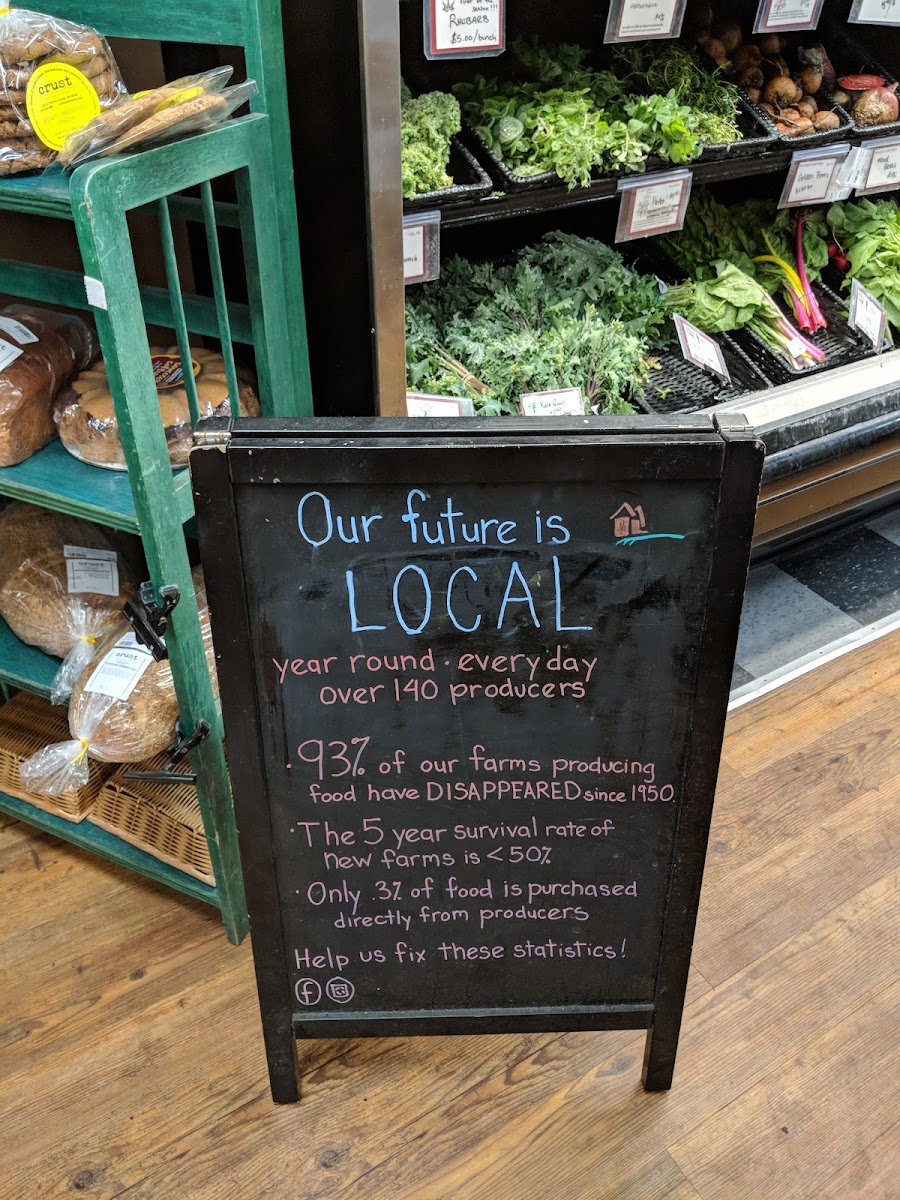 RHUBARB
$5.00/bunch
crust
Kale Bunch
crust
crust
Our future is
LOCAL
year round · every day
over 140 producers
· 93% of our farms producing
food have DISAPPEARED since 1950
· The 5 year survival rate of
new farms is < 50%
· Only .3% of food is purchased
directly from producers
Help us fix these statistics!
f